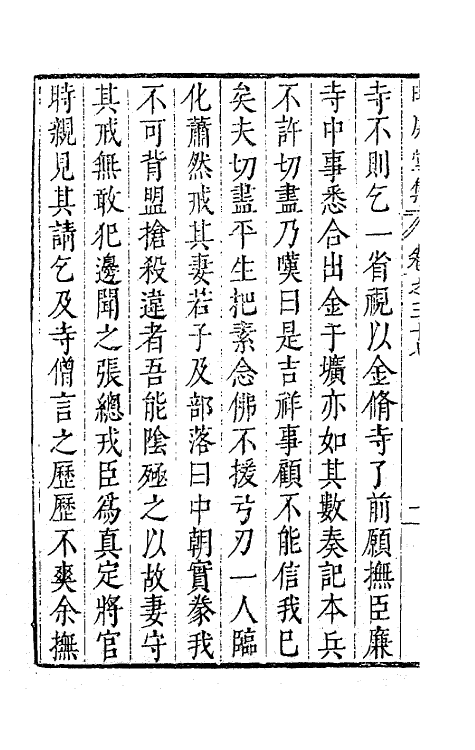 寺不則乞一省視以金脩寺了前願撫臣廉
寺中事悉合出金于壙亦如其數奏記本兵
不許切盡乃嘆曰是吉祥事顧不能信我已
矣夫切盡平生把素念佛不援弓刃一人臨
化蕭然戒其妻若子及部落曰中朝實豢我
不可背盟搶殺違者吾能陰殛之以故妻守
其戒無敢犯邊聞之張總戎臣為真定將官
時親見其請乞及寺僧言之歷歷不爽余撫